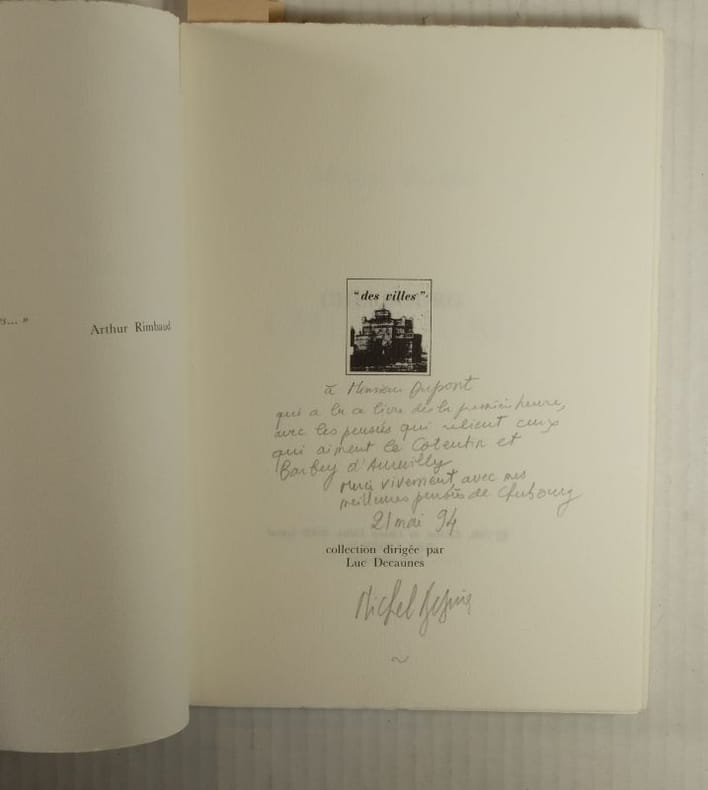 s... »
Arthur Rimbaud
"des villes"
à Monsieur Dupont
qui a lu ce livre dès la première heure,
avec les pensées qui relient ceux
qui aiment le Cotentin et
Barbey d'Aurevilly
Merci vivement, avec mes
meilleures pensées de Cherbourg
21 mai 94
collection dirigée par
Luc Decaunes
Michel